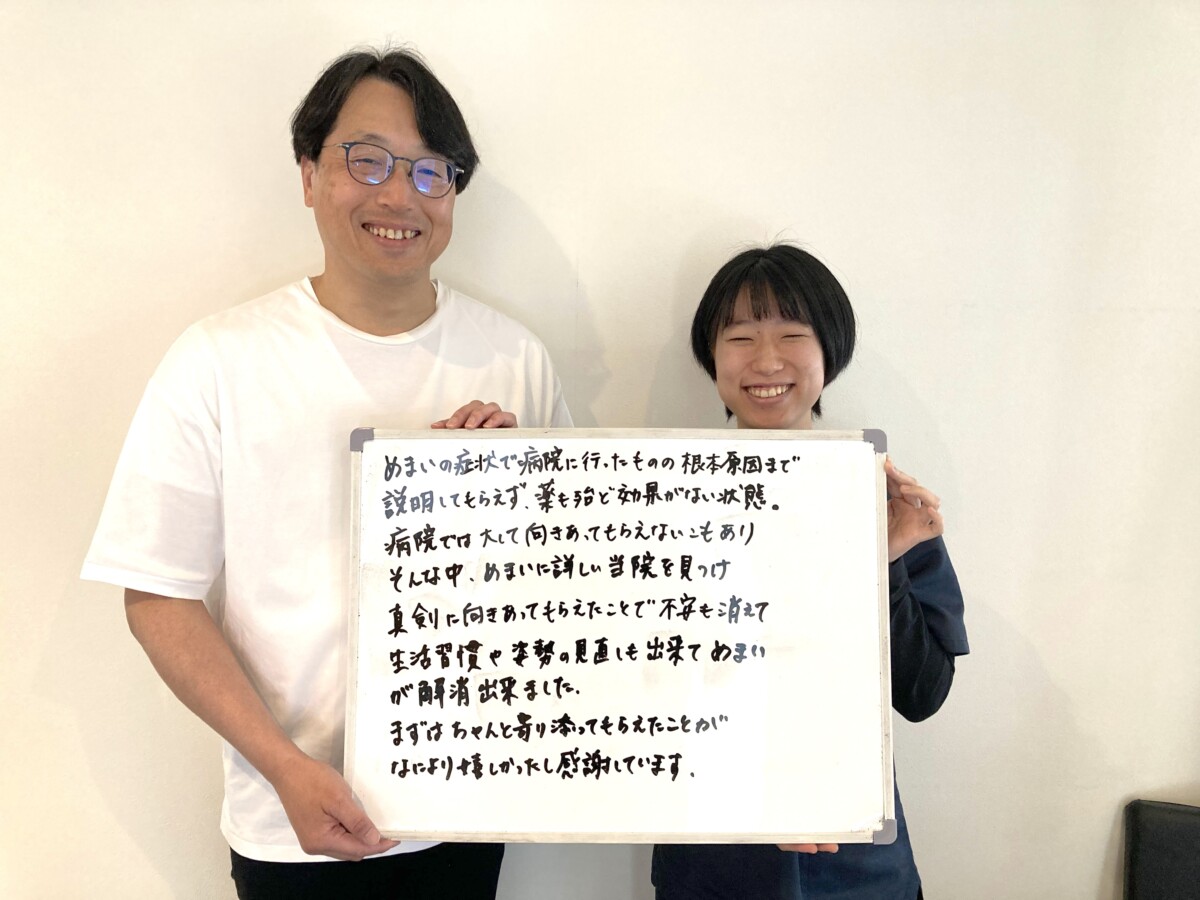 めまいの症状で病院に行ったものの根本原因まで
説明してもらえず、薬も殆ど効果がない状態。
病院では大して向きあってもらえないこもあり
そんな中、めまいに詳しい当院を見つけ
真剣に向きあってもらえたことで不安も消えて
生活習慣や姿勢の見直しも出来てめまい
が解消出来ました.
まずはちゃんと寄り添ってもらえたことが
なにより嬉しかったし感謝しています.